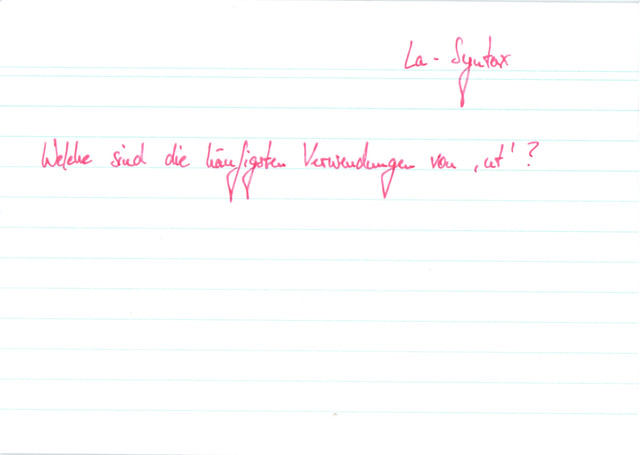 La - Syntax
Welche sind die häufigsten Verwendungen von ‚ut' ?